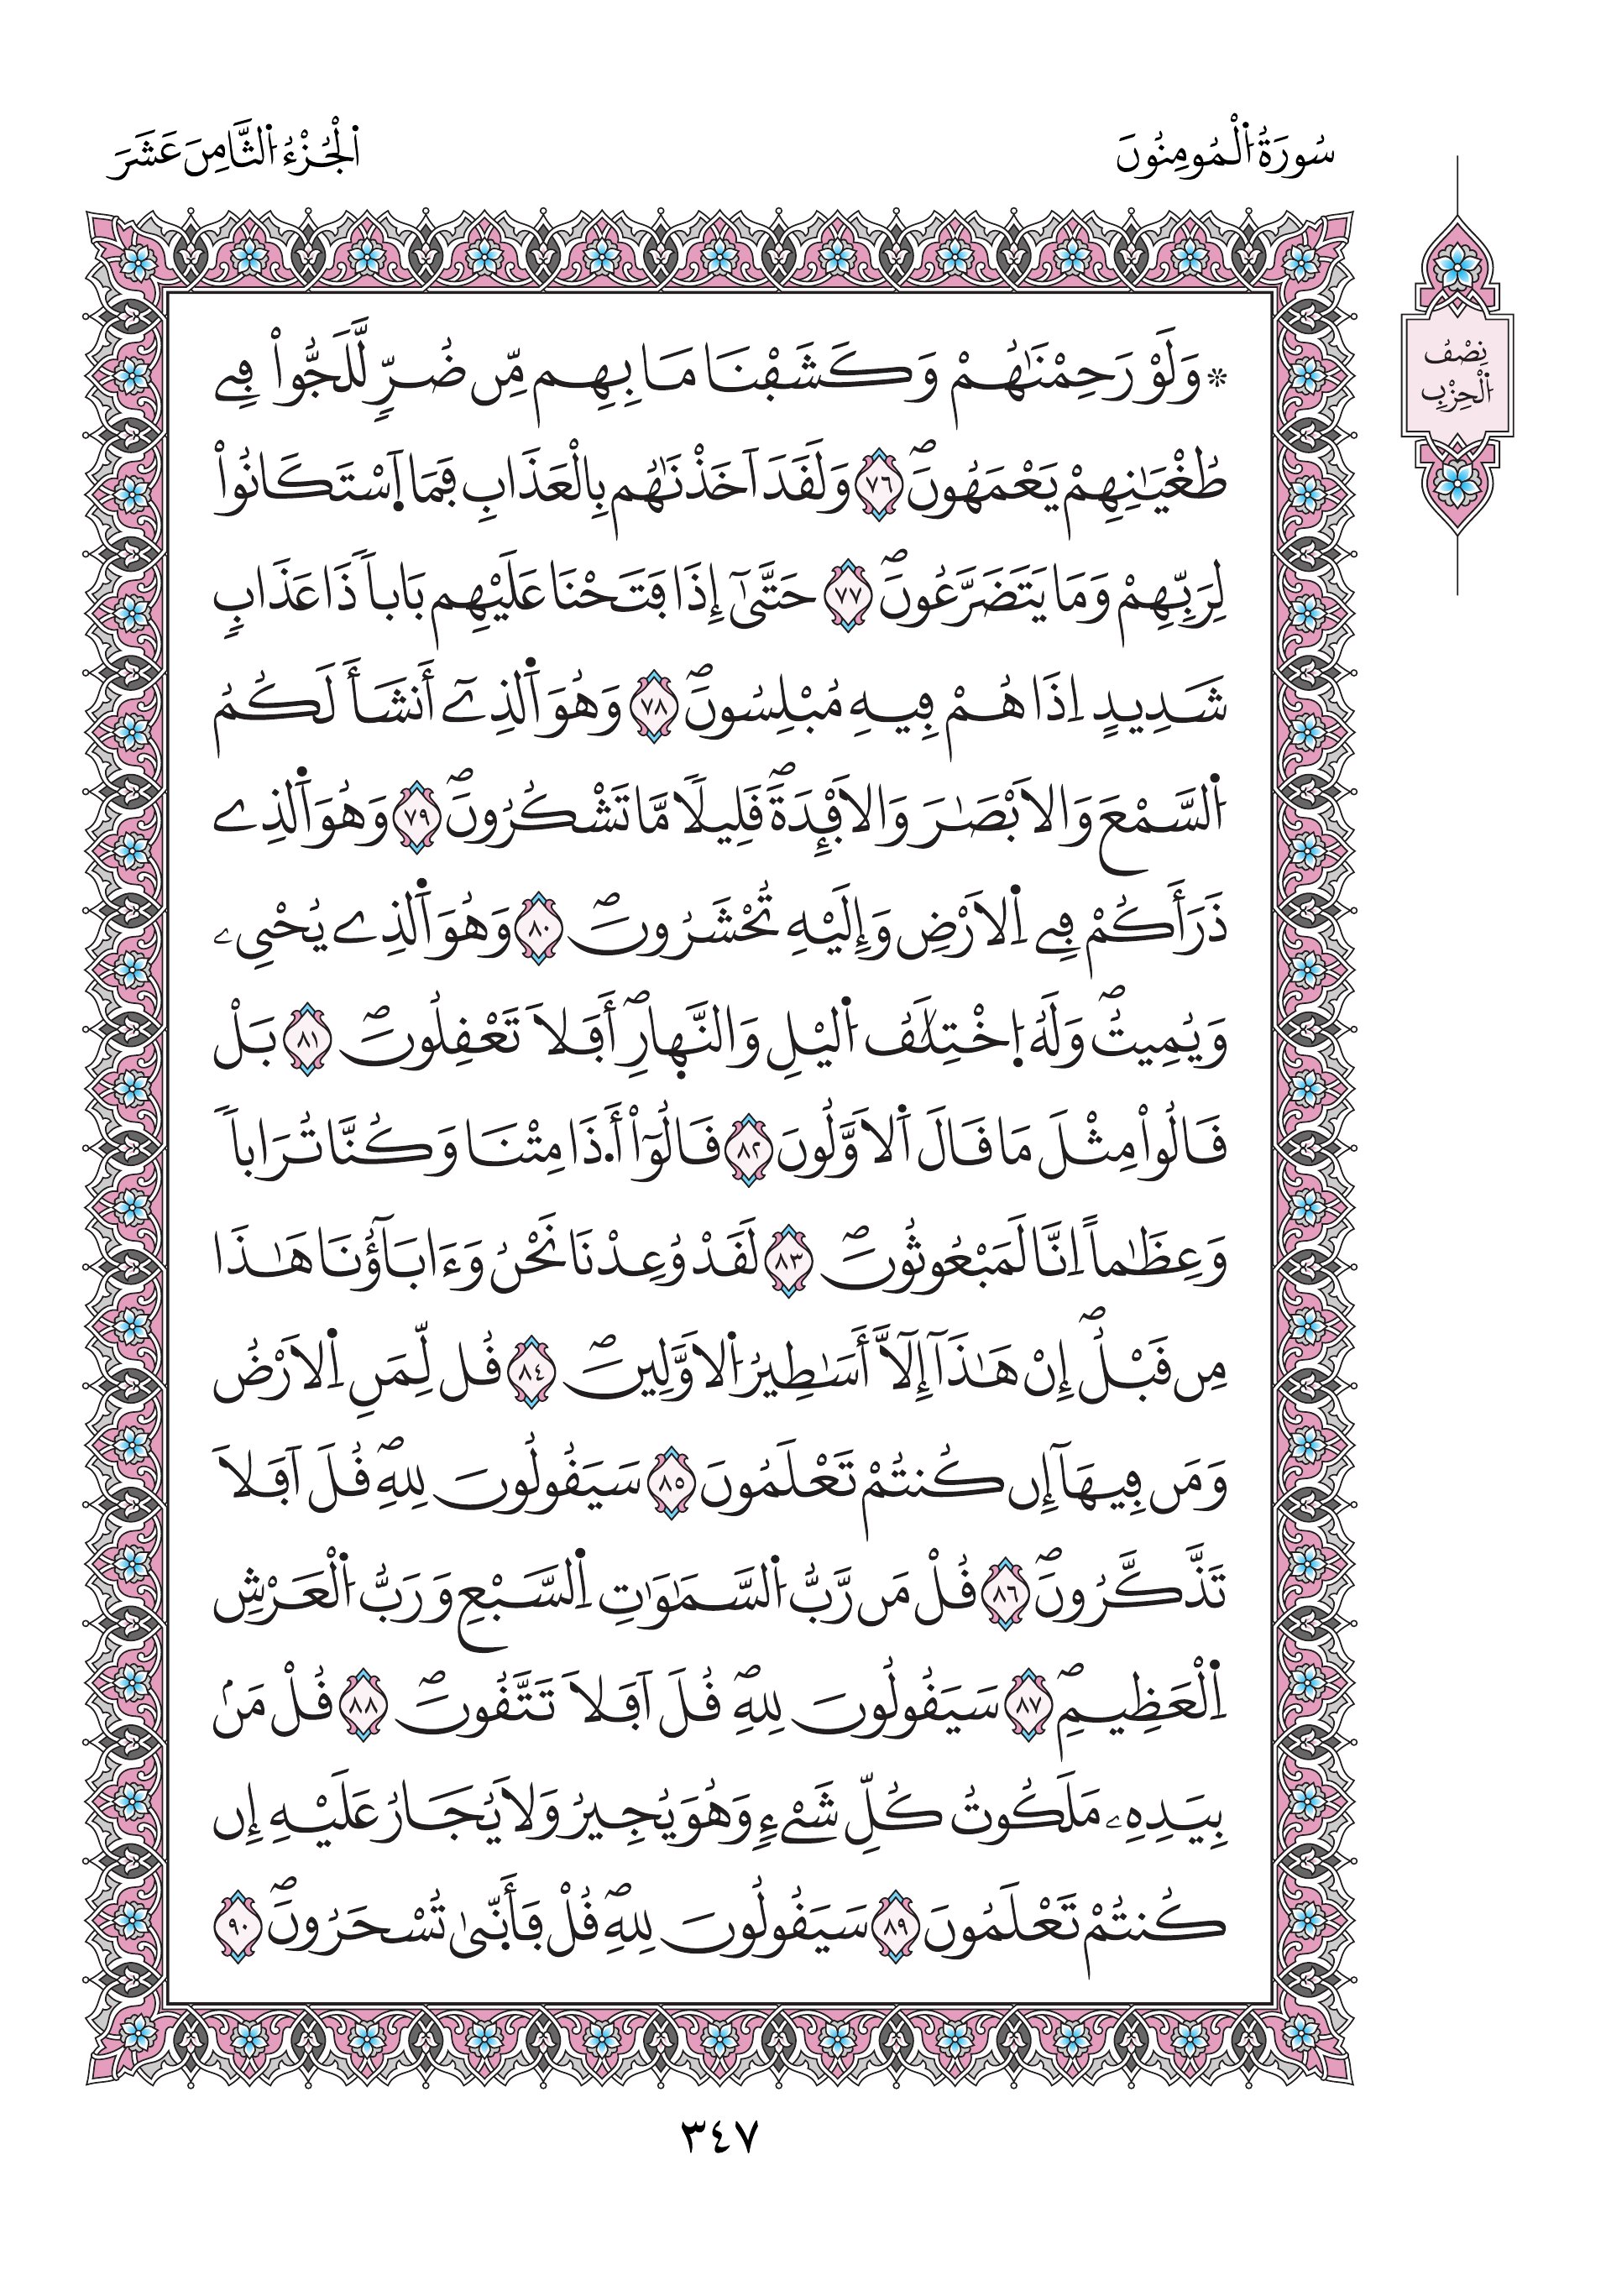 سُورَةُ الْمُومِنُونَ
الْجُزْءُ الثَّامِنَ عَشَرَ
نِصْفُ
الْحِزْبِ
* وَلَوْ رَحِمْنَٰهُمْ وَكَشَڢْنَا مَا بِهِم مِّن ضُرّٖ لَّلَجُّواْ ڢِے
طُغْيَٰنِهِمْ يَعْمَهُونَۖ ٧٦ وَلَفَدَ اَخَذْنَٰهُم بِالْعَذَابِ ڢَمَا اَسْتَكَانُواْ
لِرَبِّهِمْ وَمَا يَتَضَرَّعُونَۖ ٧٧ حَتَّىٰٓ إِذَا ڢَتَحْنَا عَلَيْهِم بَاباٗ ذَا عَذَابٖ
شَدِيدٍ اِذَا هُمْ ڢِيهِ مُبْلِسُونَۖ ٧٨ وَهُوَ اَلذِےٓ أَنشَأَ لَكُمُ
اُلسَّمْعَ وَالَابْصَٰرَ وَالَاڢْـِٕدَةَۖ فَلِيلاٗ مَّا تَشْكُرُونَۖ ٧٩ وَهُوَ اَلذِے
ذَرَأَكُمْ ڢِے اِلَارْضِ وَإِلَيْهِ تُحْشَرُونَۖ ٨٠ وَهُوَ اَلذِے يُحْيِۦ
وَيُمِيتُۖ وَلَهُ اُخْتِلَٰڢُ اُليْلِ وَالنَّهِارِۖ أَڢَلَا تَعْفِلُونَۖ ٨١ بَلْ
فَالُواْ مِثْلَ مَا فَالَ اَلَاوَّلُونَ ٨٢ فَالُوٓاْ أَ.ذَا مِتْنَا وَكُنَّا تُرَاباٗ
وَعِظَٰماً اِنَّا لَمَبْعُوثُونَۖ ٨٣ لَفَدْ وُعِدْنَا نَحْنُ وَءَابَآؤُنَا هَٰذَا
مِن فَبْلُۖ إِنْ هَٰذَآ إِلَّآ أَسَٰطِيرُ اُلَاوَّلِينَۖ ٨٤ فُل لِّمَنِ اِلَارْضُ
وَمَن ڢِيهَآ إِن كُنتُمْ تَعْلَمُونَ ٨٥ سَيَفُولُونَ لِلهِۖ فُلَ اَڢَلَا
تَذَّكَّرُونَۖ ٨٦ فُلْ مَن رَّبُّ اُلسَّمَٰوَٰتِ اِلسَّبْعِ وَرَبُّ اُلْعَرْشِ
اِلْعَظِيمِۖ ٨٧ سَيَفُولُونَ لِلهِۖ فُلَ اَڢَلَا تَتَّفُونَۖ ٨٨ فُلْ مَنۢ
بِيَدِهِۦ مَلَكُوتُ كُلِّ شَےْءٖ وَهُوَ يُجِيرُ وَلَا يُجَارُ عَلَيْهِ إِن
كُنتُمْ تَعْلَمُونَ ٨٩ سَيَفُولُونَ لِلهِۖ فُلْ ڢَأَنّ۪ىٰ تُسْحَرُونَۖ ٩٠
٣٤٧